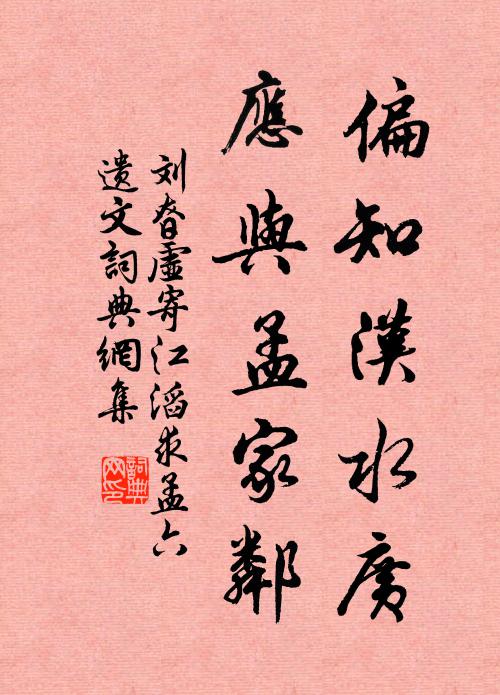 偏知漢水廣
應與孟家鄰
刘昚虛寄江滔求孟六
遗文詞典網集
詞典网印